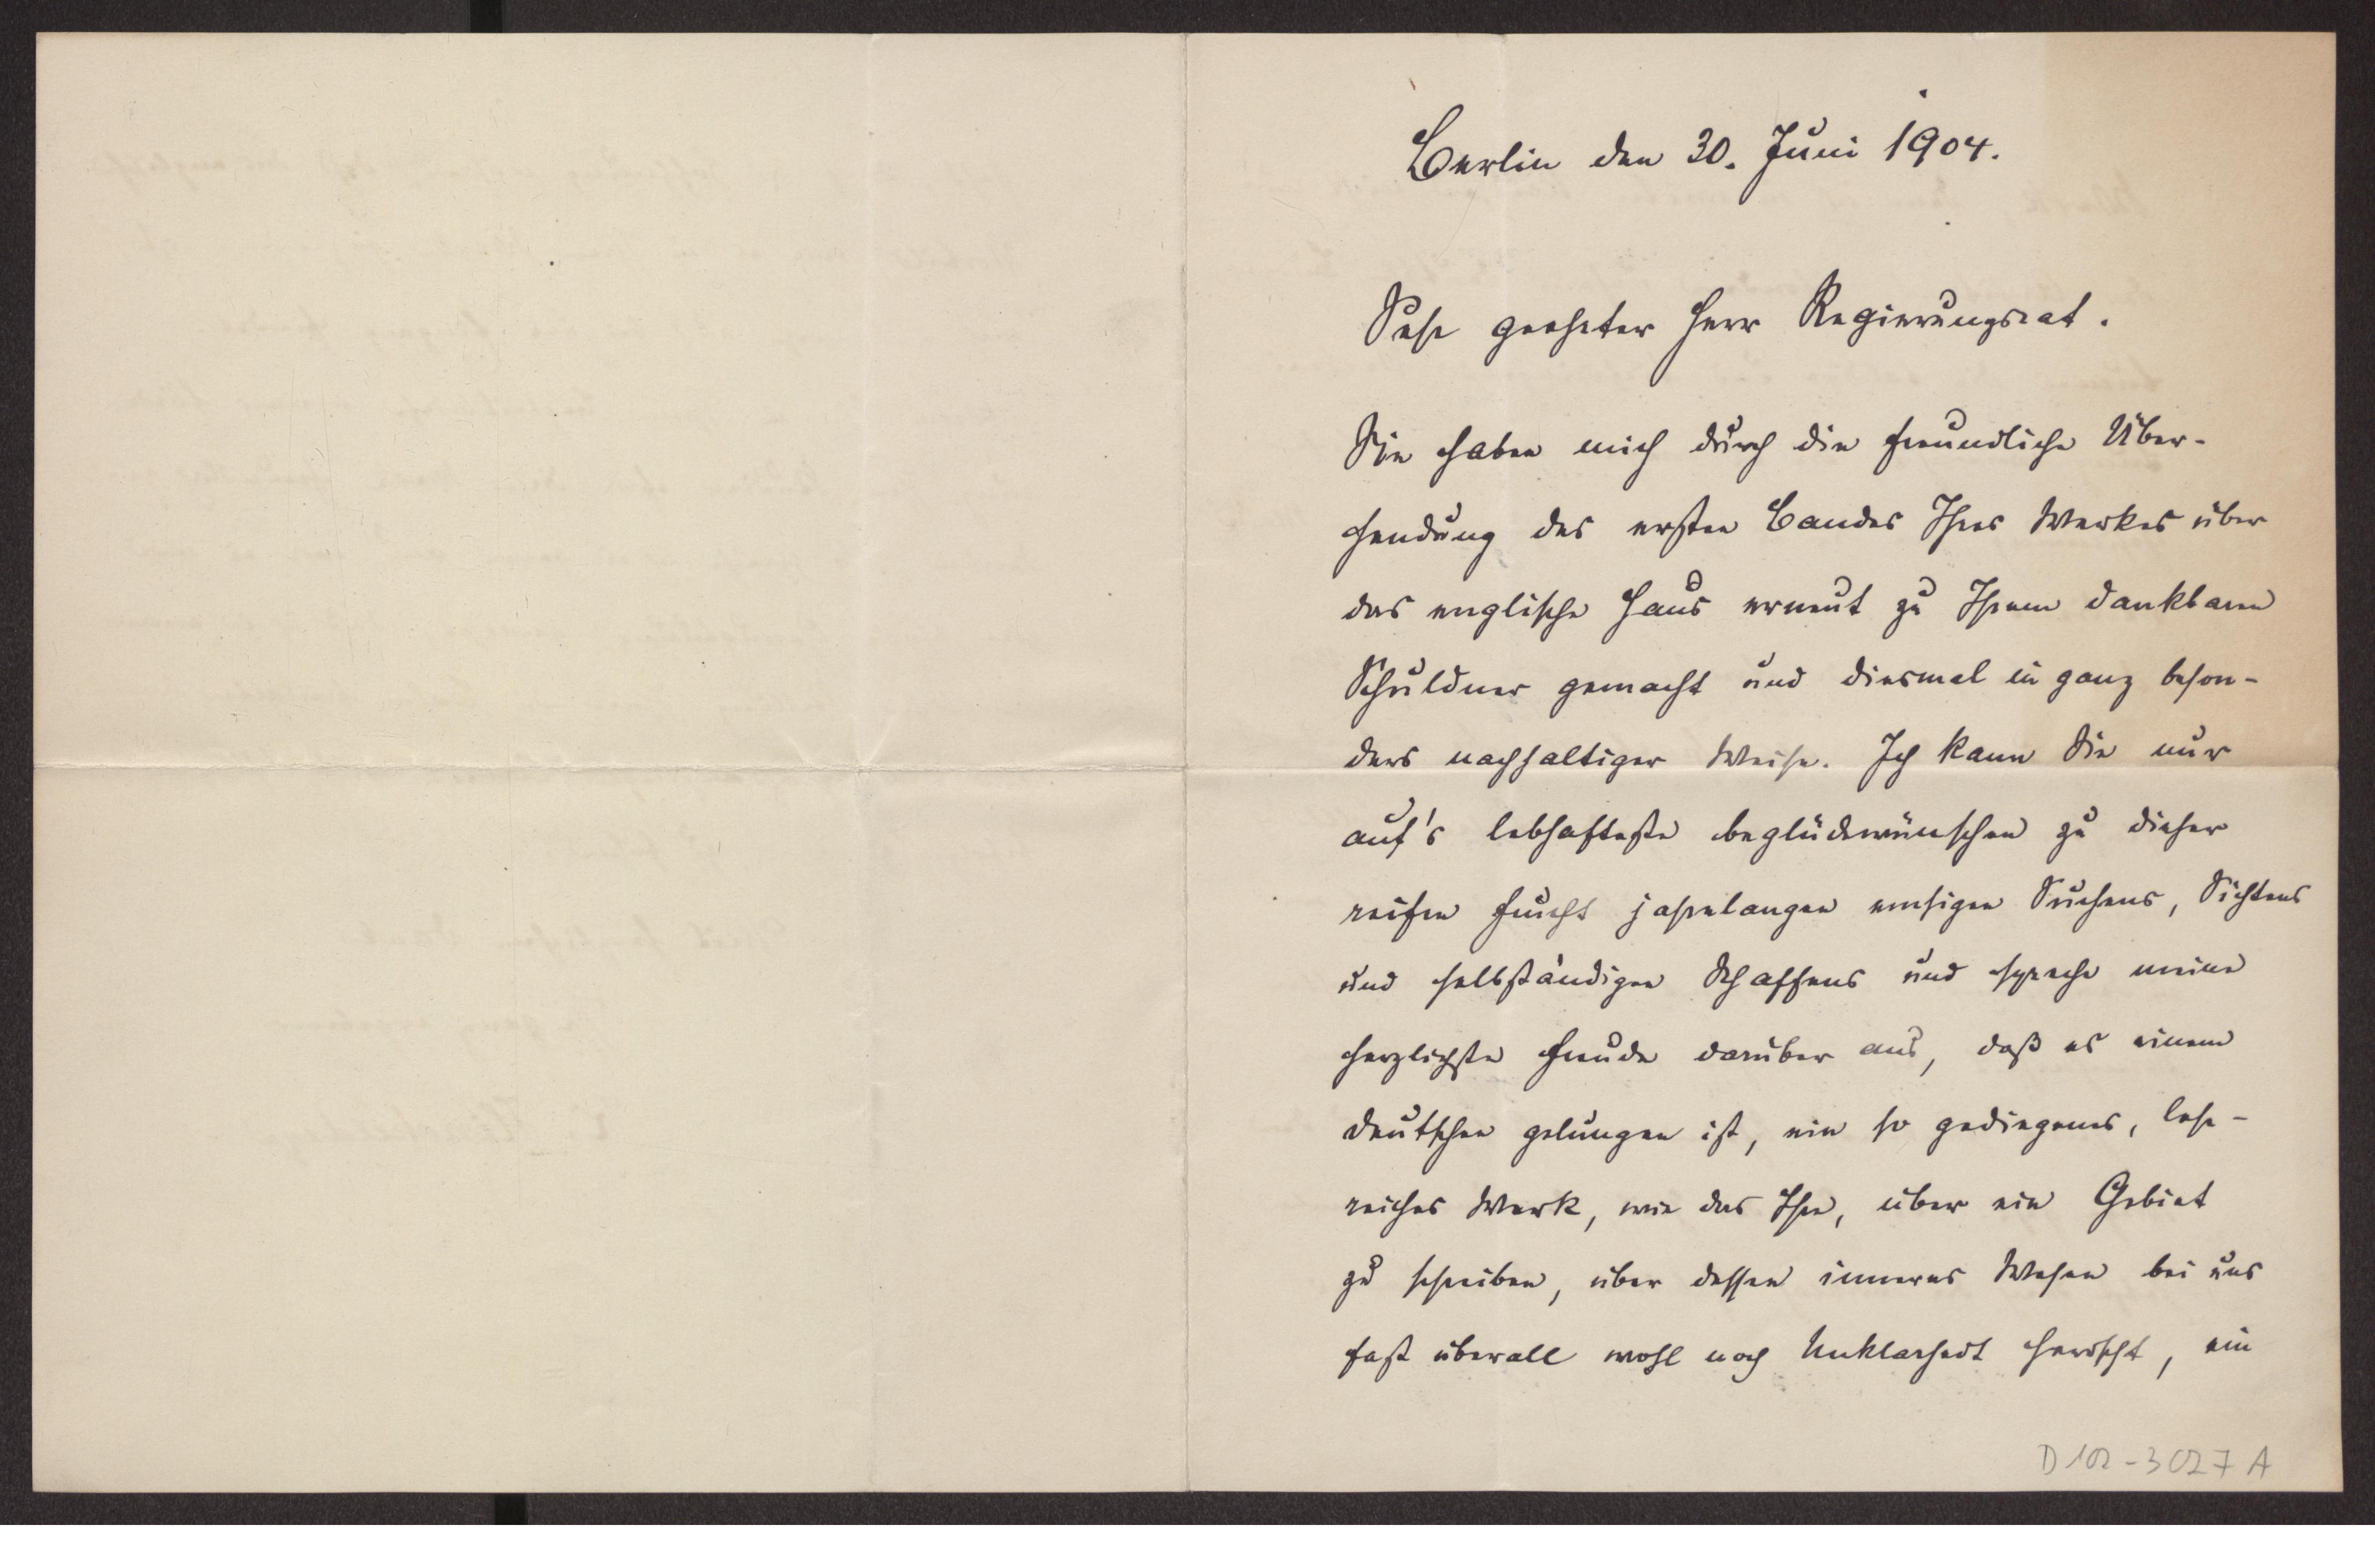 Berlin den 30. Juni 1904.
Sehr geehrter Herr Regierungsrat.
Sie haben mich durch die freundliche Über-
sendung des ersten Bandes Ihres Werkes über
das englische Haus erneut zu Ihrem dankbaren
Schuldner gemacht und diesmal in ganz beson-
ders nachhaltiger Weise. Ich kann Sie nur
auf's lebhafteste beglückwünschen zu dieser
reifen Frucht jahrelangen emsigen Suchens, Sichtens
und selbständigen Schaffens und spreche meine
herzlichste Freude darüber aus, daß es einem
Deutschen gelungen ist, ein so gediegenes, lehr-
reiches Werk, wie das Ihre, über ein Gebiet
zu schreiben, über dessen inneres Wesen bei uns
fast überall wohl noch Unklarheit herrscht, ein
D 102-3027 A